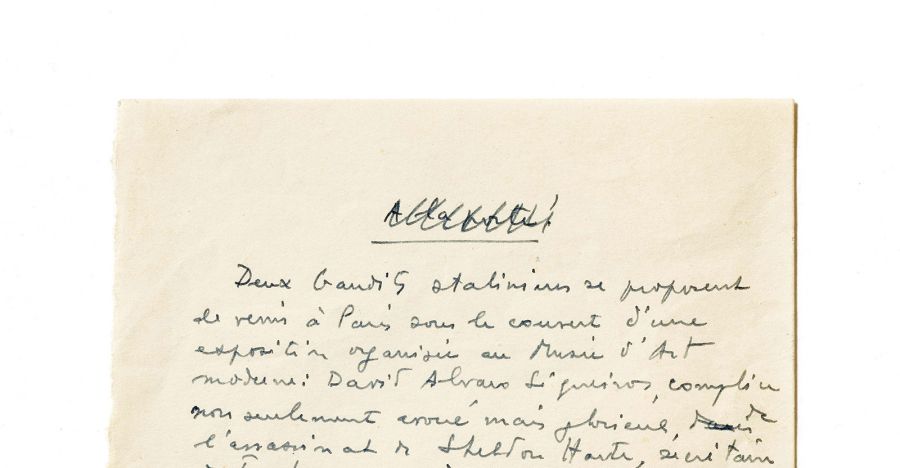 A la porte !
Deux bandits staliniens se proposent
de venir à Paris sous le couvert d'une
exposition organisée au Musée d'Art
moderne : David Alvaro Siqueiros, complice
non seulement avoué mais glorieux, dans de
l'assassinat de Sheldon Harte, secrétaire